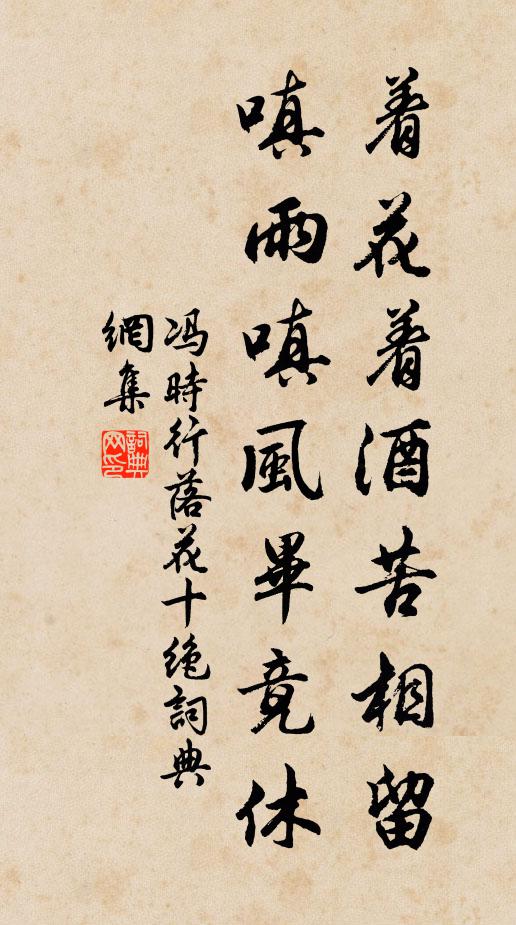 着花着酒苦相留
嗔雨嗔風畢竟休
冯時行落花十绝詞典
網集
詞典网印